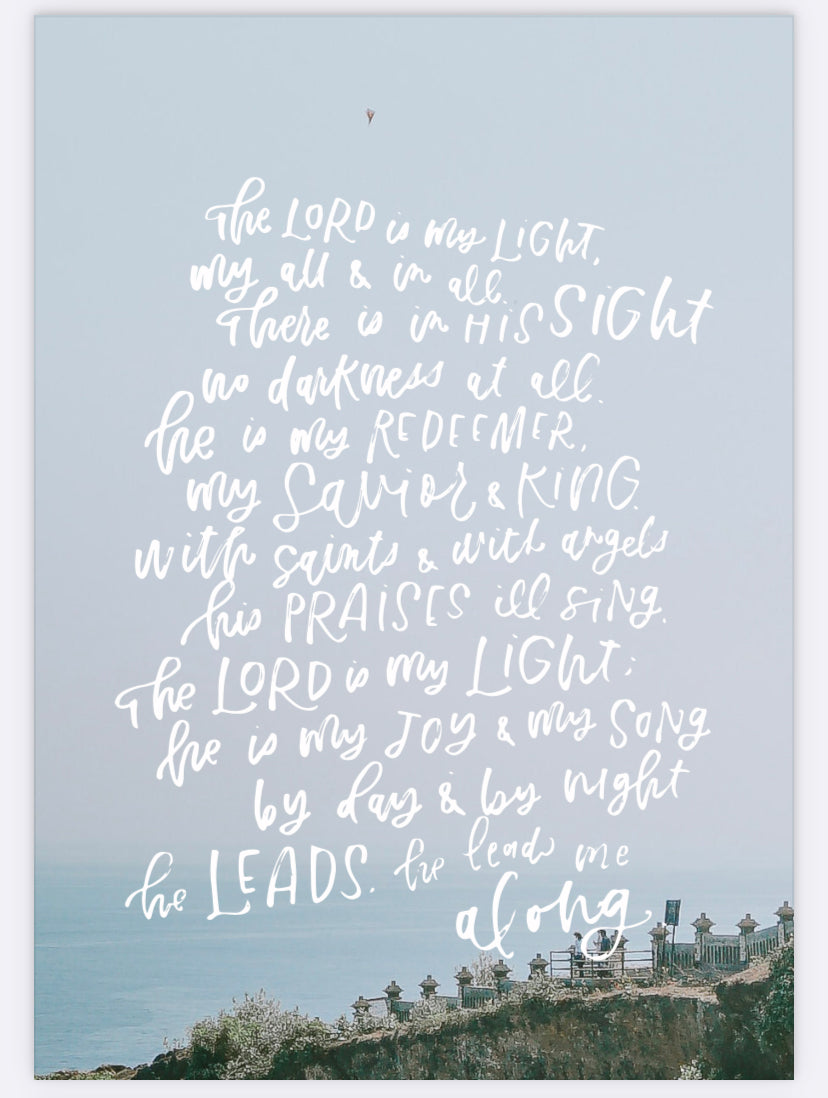 The LORD is my LiGht,
my all & in all.
There is in HiS SiGht
no darkness at all.
he is my REDEEMER,
my Savior & KiNG.
with saints & with angels
his PRAiSES ill siNg.
The LORD is my LiGht;
he is my JOY & my SoNg
by day & by night
he LEADS. he leads me
along